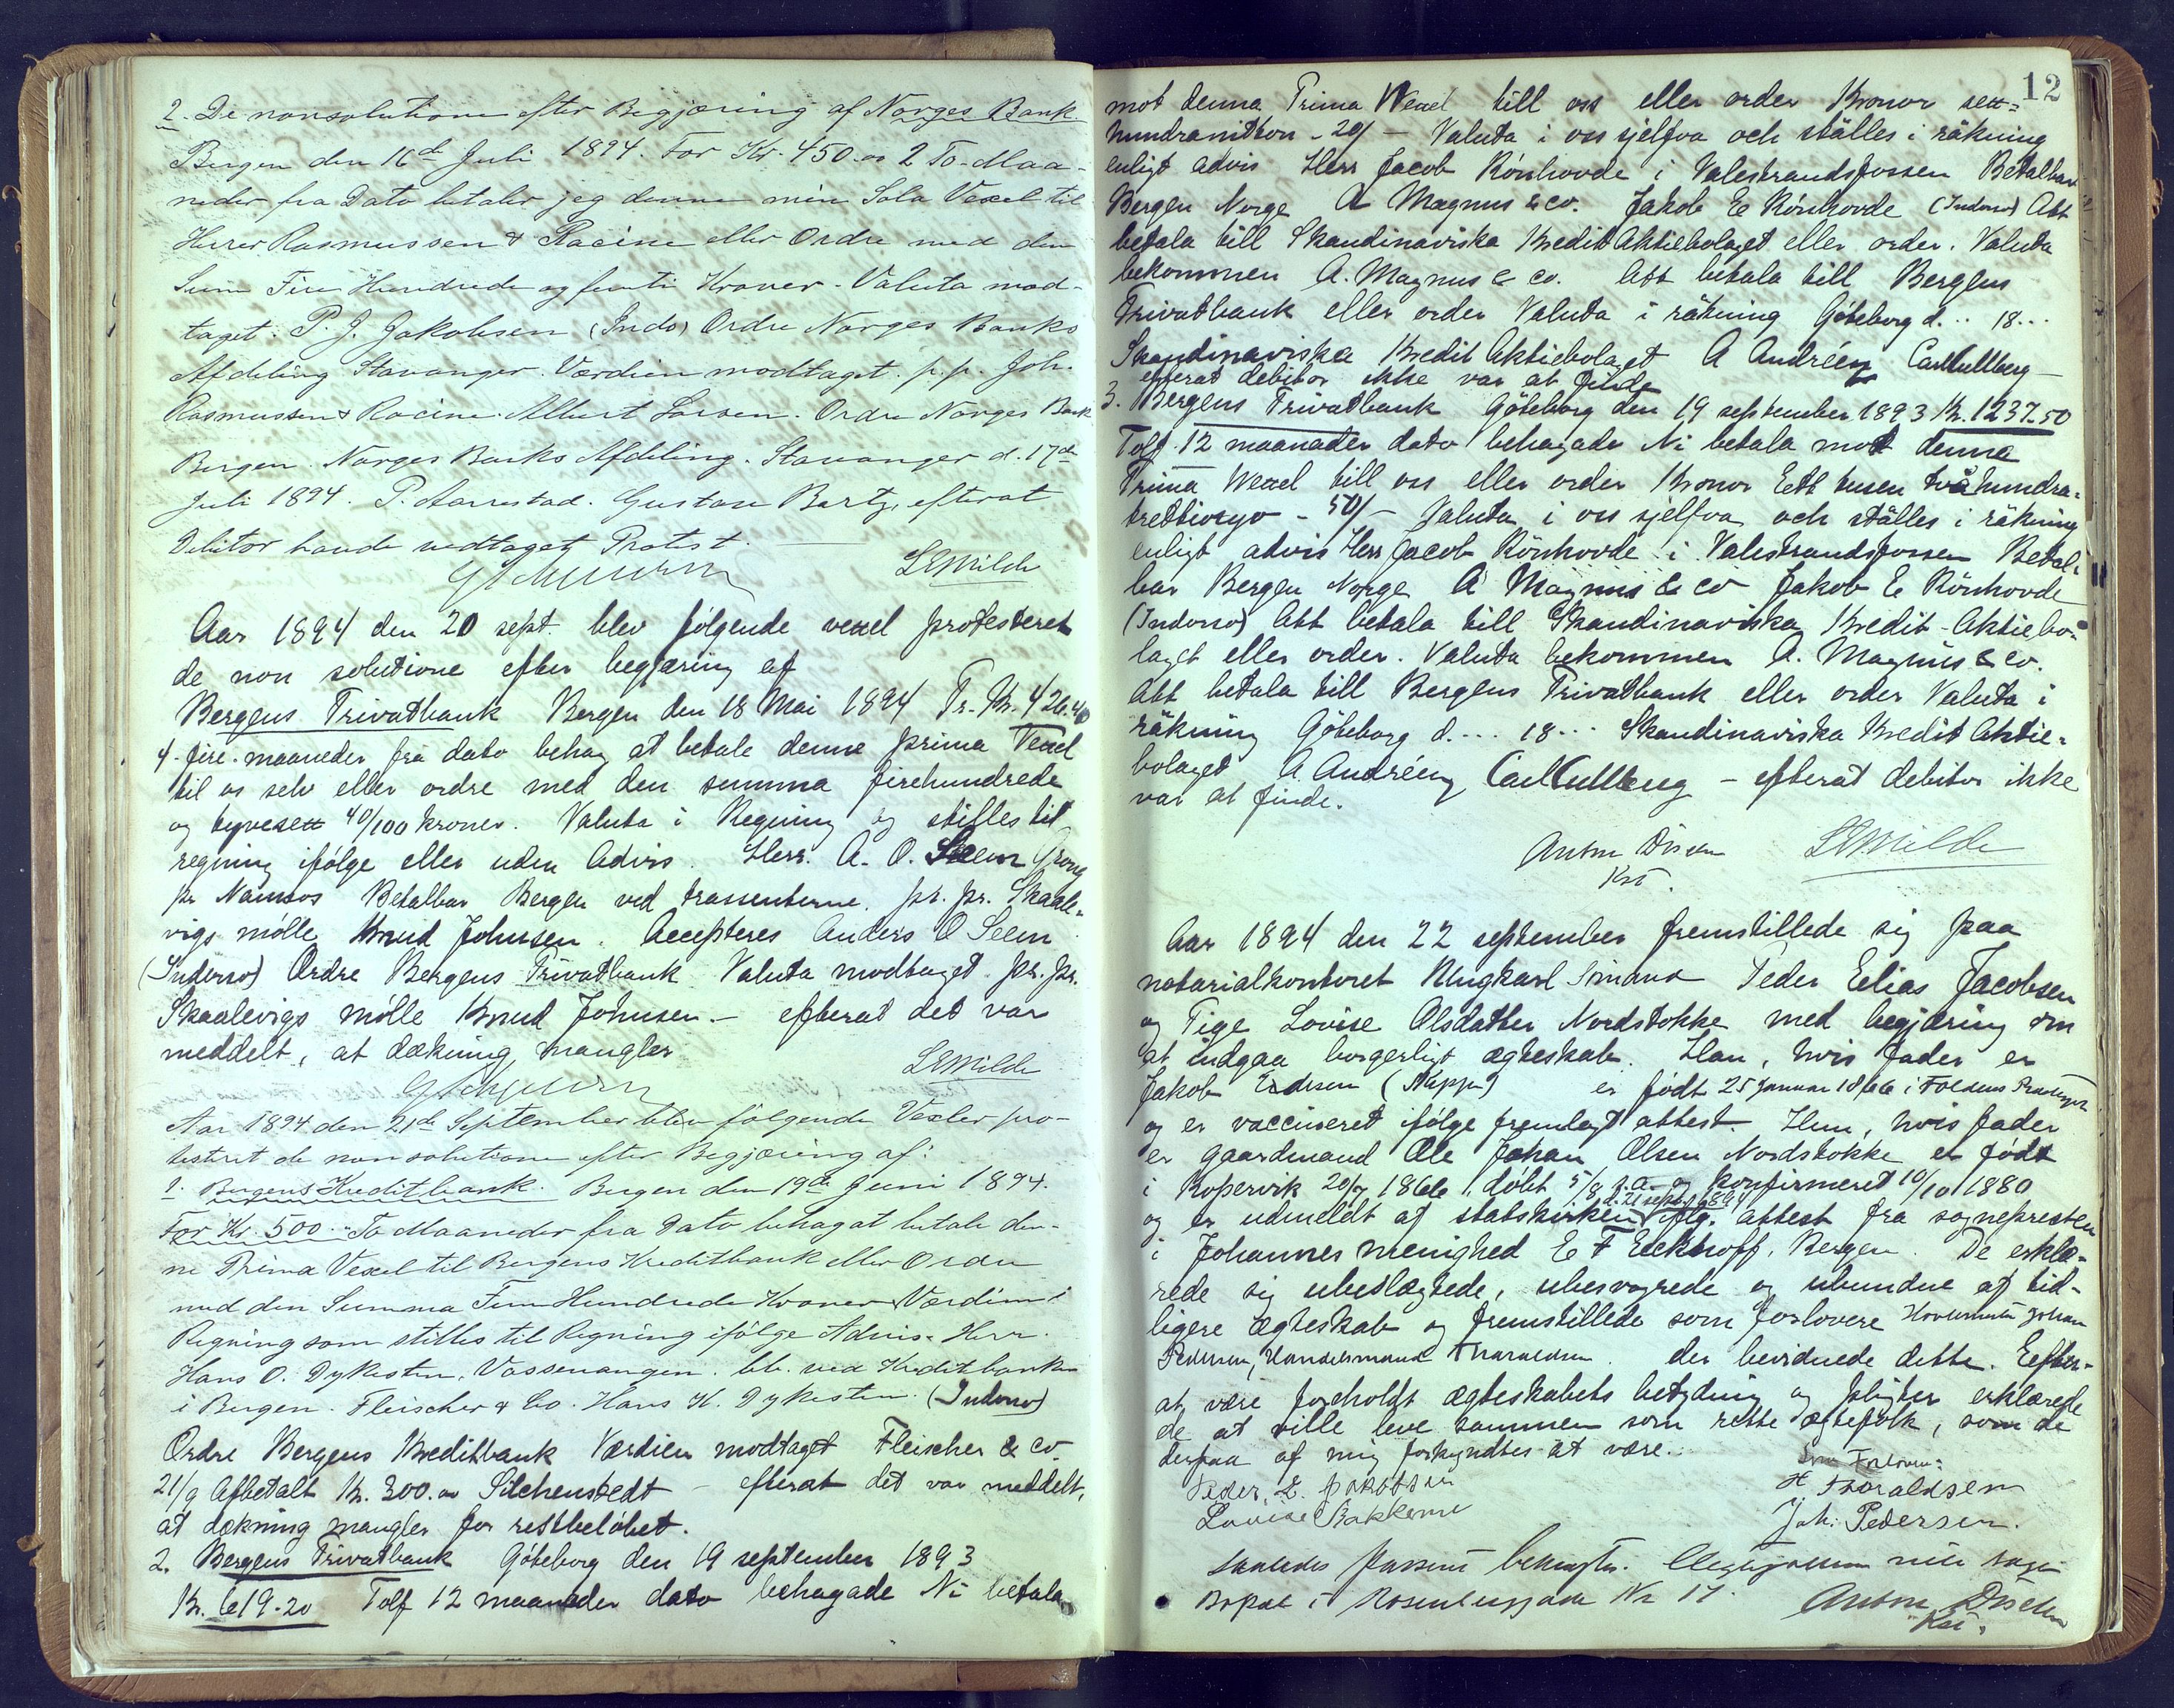 2. De nonsolutione efter Begjæring af Norges Bank
Bergen den 16de Juli 1894. For Kr. 450.00 2 To-Maa-
neder fra Dato betaler jeg denne min Sola Vexel til
Herrer Rasmussen & Racine eller Ordre med den
Sum Fire Hundrede og femti Kroner - Valuta mod-
taget. P. J. Jakobsen (Indo) Ordre Norges Banks
Afdeling Stavanger. Værdien modtaget. p.p. Joh.
Rasmussen & Racine. Albert Larsen. Ordre Norges Bank
Bergen. Norges Banks Afdeling. Stavanger d. 17de
Juli 1894. P. Aarrestad. Gustav Bartz, efterat
Debitor havde vedtaget Protest.
LEMilde
Aar 1894 den 20 sept. blev følgende vexel protesteret
de non solutione efter begjæring af
Bergens Privatbank Bergen den 18 Mai 1894 Pr. Kr. 426.40
4 - fire - maaneder fra dato behag at betale denne prima Vexel
til os selv eller ordre med den summa firehundrede
og tyvesex 40/100 kroner. Valuta i Regning og stilles til
regning ifølge eller uden Advis. Herr. A. O. Seem Grong
pr Namsos Betalbar Bergen ved trassenterne. pr. pr. Skaale-
vigs mølle Knud Johnsen. Accepteres Anders O Seem
(Indosso) Ordre Bergens Privatbank Valuta modtaget. pr. pr.
Skaalevigs mølle Knud Johnsen - efterat det var
meddelt, at dækning mangler
LEMilde
Aar 1894 den 21de September blev følgende Vexler pro-
testeret de non solutione efter Begjæring af:
1. Bergens Kreditbank. Bergen den 19de Juni 1894.
For Kr. 500.- To Maaneder fra Dato behag at betale den-
ne Prima Vexel til Bergens Kreditbank eller Ordre
med den Summa Fem Hundrede Kroner Værdien i
Regning som stilles til Regning ifølge Advis. Herr.
Hans O. Dykesten, Vossevangen. bb. ved Kreditbanken
i Bergen. Fleischer & Co. Hans K. Dykesten. (Indosso)
Ordre Bergens Kreditbank Værdien modtaget Fleischer & Co
21/9 Afbetalt Kr. 300.00 Sitchenstedt - efterat det var meddelt,
at dækning mangler for restbeløbet.
2. Bergens Privatbank Göteborg den 19 september 1893
Kr. 619.20 Tolf 12 maanader dato behagade Ni betala
12
mot denna Prima Wexel till oss eller order Kronor sex-
hundranitton - 20/ - Valuta i oss sjelfva och ställes i räkning
enligt advis Herr Jacob Rönhovde i Valestrandsfossen Betalbar
Bergen Norge A Magnus & co. Jakob E Rönhovde (Indosso) Att
betala till Skandinaviska Kredit Aktiebolaget eller order. Valuta
bekommen A. Magnus & co. Att betala till Bergens
Privatbank eller order Valuta i räkning Göteborg d... 18...
Skandinaviska Kredit Aktiebolaget A Andréen Carl Cullberg -
efterat debitor ikke var at finde
3. Bergens Privatbank Göteborg den 19 september 1893 Kr. 1237.50
Tolf 12 maanader dato behagade Ni betala mot denna
Prima Wexel till oss eller order Kronor Ett tusen två hundra-
trettiosju - 50/ - Valuta i oss sjelfva och ställes i räkning
enligt advis Herr Jacob Rönhovde i Valestrandsfossen Betal-
bar Bergen Norge A Magnus & co Jakob E Rönhovde
(Indosso) Att betala till Skandinaviska Kredit-Aktiebo-
laget eller order. Valuta bekommen A. Magnus & co.
Att betala till Bergens Privatbank eller order Valuta i
räkning Göteborg d.... 18... Skandinaviska Kredit Aktie-
bolaget A. Andréen Carl Cullberg - efterat debitor ikke
var at finde.
LEMilde
Kst.
Aar 1894 den 22 september fremstillede sig paa
notarialkontoret Ungkarl Sømand Peder Elias Jacobsen
og Pige Lovise Olsdatter Nordstokke med begjæring om
at indgaa borgerligt ægteskab. Han, hvis fader er
Jakob er født 25 Januar 1866 i
og er vaccineret ifølge fremlagt attest. Hun, hvis fader
er gaardmand Ole Johan Olsen Nordstokke er født
i Kopervik 20/7 1866, døbt 5/8 s.a. og konfirmeret 10/10 1880
og er udmeldt af statskirken d. 21 sept. 1894 iflg. attest fra sognepresten
i Johannes menighed E F Eckhoff, Bergen. De erklæ-
rede sig ubeslægtede, ubesvogrede og ubundne af tid-
ligere ægteskab og fremstillede som forlovere Johan
Pedersen, Handelsmand Tharaldsen. der bevidnede dette. Efter-
at være foreholdt ægteskabets betydning og pligter erklærede
de at ville leve sammen som rette ægtefolk, som de
derpaa af mig forkyndtes at være.
Som Forlovere:
Peder. E. Jakobsen
H Tharaldsen
Lovise Bakkeme
Joh: Pedersen.
Saaledes passeret bekræftes.
Bopæl i Rosenbergsgaden Nr 17.
Kst.